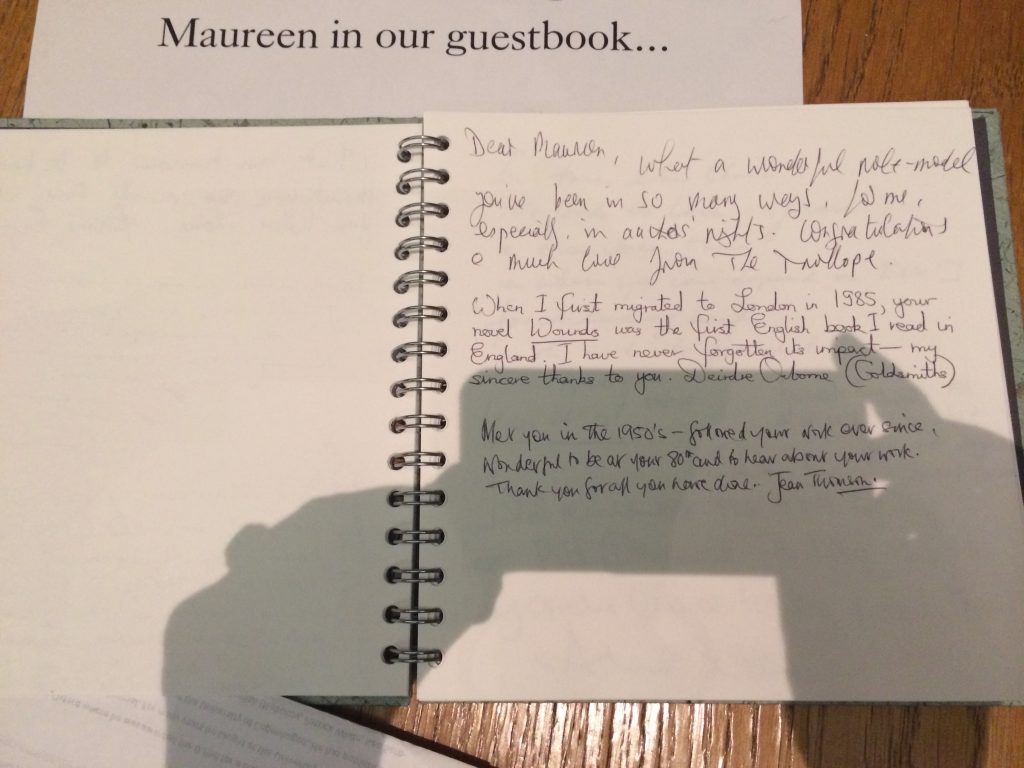 Maureen in our guestbook...
Dear Maureen, What a wonderful role-model
you've been in so many ways, for me,
especially, in authors' rights. Congratulations
& much love from The Trollope.
When I first migrated to London in 1985, your
novel Wounds was the first English book I read in
England. I have never forgotten its impact — my
sincere thanks to you. Deirdre Osborne (Goldsmiths)
Met you in the 1950's – followed your work ever since.
Wonderful to be at your 80th and to hear about your work.
Thank you for all you have done. Jean Thomson.